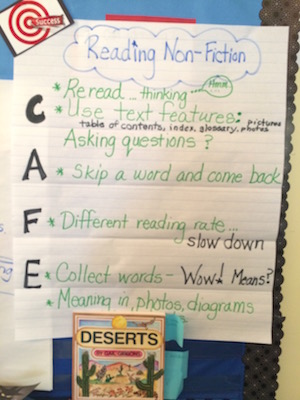 Success
Reading Non-Fiction
* Reread... thinking...
C * Use text features: pictures
table of contents, index, glossary, photos
Asking questions?
A * Skip a word and come back
F * Different reading rate...
slow down
E * Collect words - Wow! Means?
* Meaning in, photos, diagrams
DESERTS
BY GAIL GIBBONS